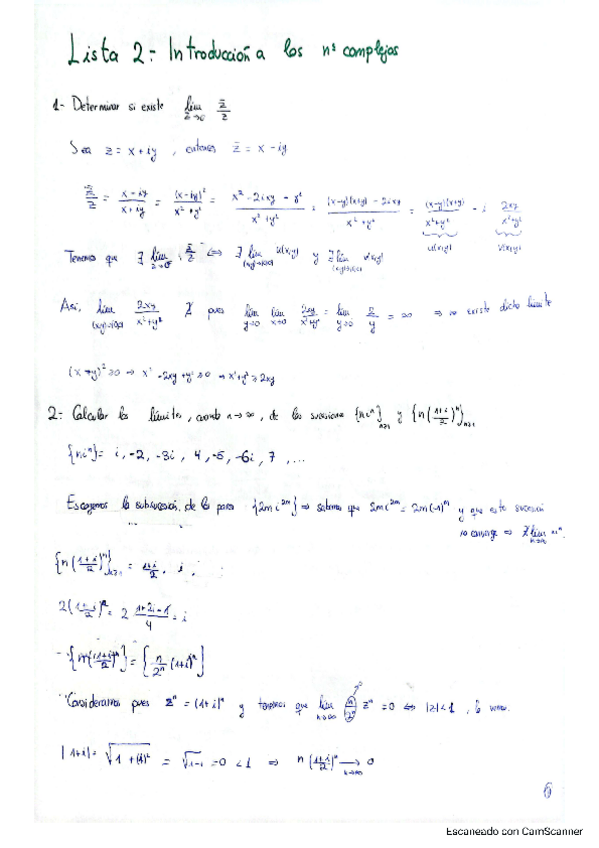 Lista 2:- Introducción a los nº complejos
1- Determinar si existe lím z→0 z̄/z
Sea z = x + iy , entonces z̄ = x - iy
z̄/z = (x - iy)/(x + iy) = (x-iy)²/(x² + y²) = (x² - 2ixy - y²)/(x² + y²) = ((x-y)(x+y) - 2ixy)/(x² + y²) = (x-y)(x+y)/(x²+y²) - i 2xy/(x²+y²)
u(x,y) v(x,y)
Tenemos que ∃ lím z→0 z̄/z ⇔ ∃ lím (x,y)→(0,0) u(x,y) y ∃ lím (x,y)→(0,0) v(x,y)
Así, lím (x,y)→(0,0) 2xy/(x²+y²) ∄ pues lím y→0 lím x→0 2xy/(x²+y²) = lím y→0 2/y = ∞ ⇒ no existe dicho límite
(x-y)² ≥ 0 → x² - 2xy + y² ≥ 0 → x²+y² ≥ 2xy
2:- Calcular los límites, cuando n→∞, de las sucesiones {ni^n} n≥1 y {n((1+i)/2)^n} n≥1
{ni^n} = i, -2, -3i, 4, -5, -6i, 7, ...
Escogemos la subsucesión de los pares {2mi^2m} ⇒ sabemos que 2mi^2m = 2m(-1)^m y que esta sucesión
...
no converge ⇒ ∄ lím n→∞ ni^n.
{n((1+i)/2)^n} n≥1 = (1+i)/2, i,
2((1+i)/2)² = 2 (1+2i-1)/4 = i
- {n((1+i)/2)^n} = {n/2^n (1+i)^n}
Consideramos pues z^n = (1+i)^n y tenemos que lím n→∞ n/2^n z^n = 0 ⇔ |z| < 1, lo vemos.
0
|1+i| = √(1 + (i)²) = √(1-1) = 0 < 1 ⇒ n((1+i)/2)^n → 0
n→∞
Escaneado con CamScanner